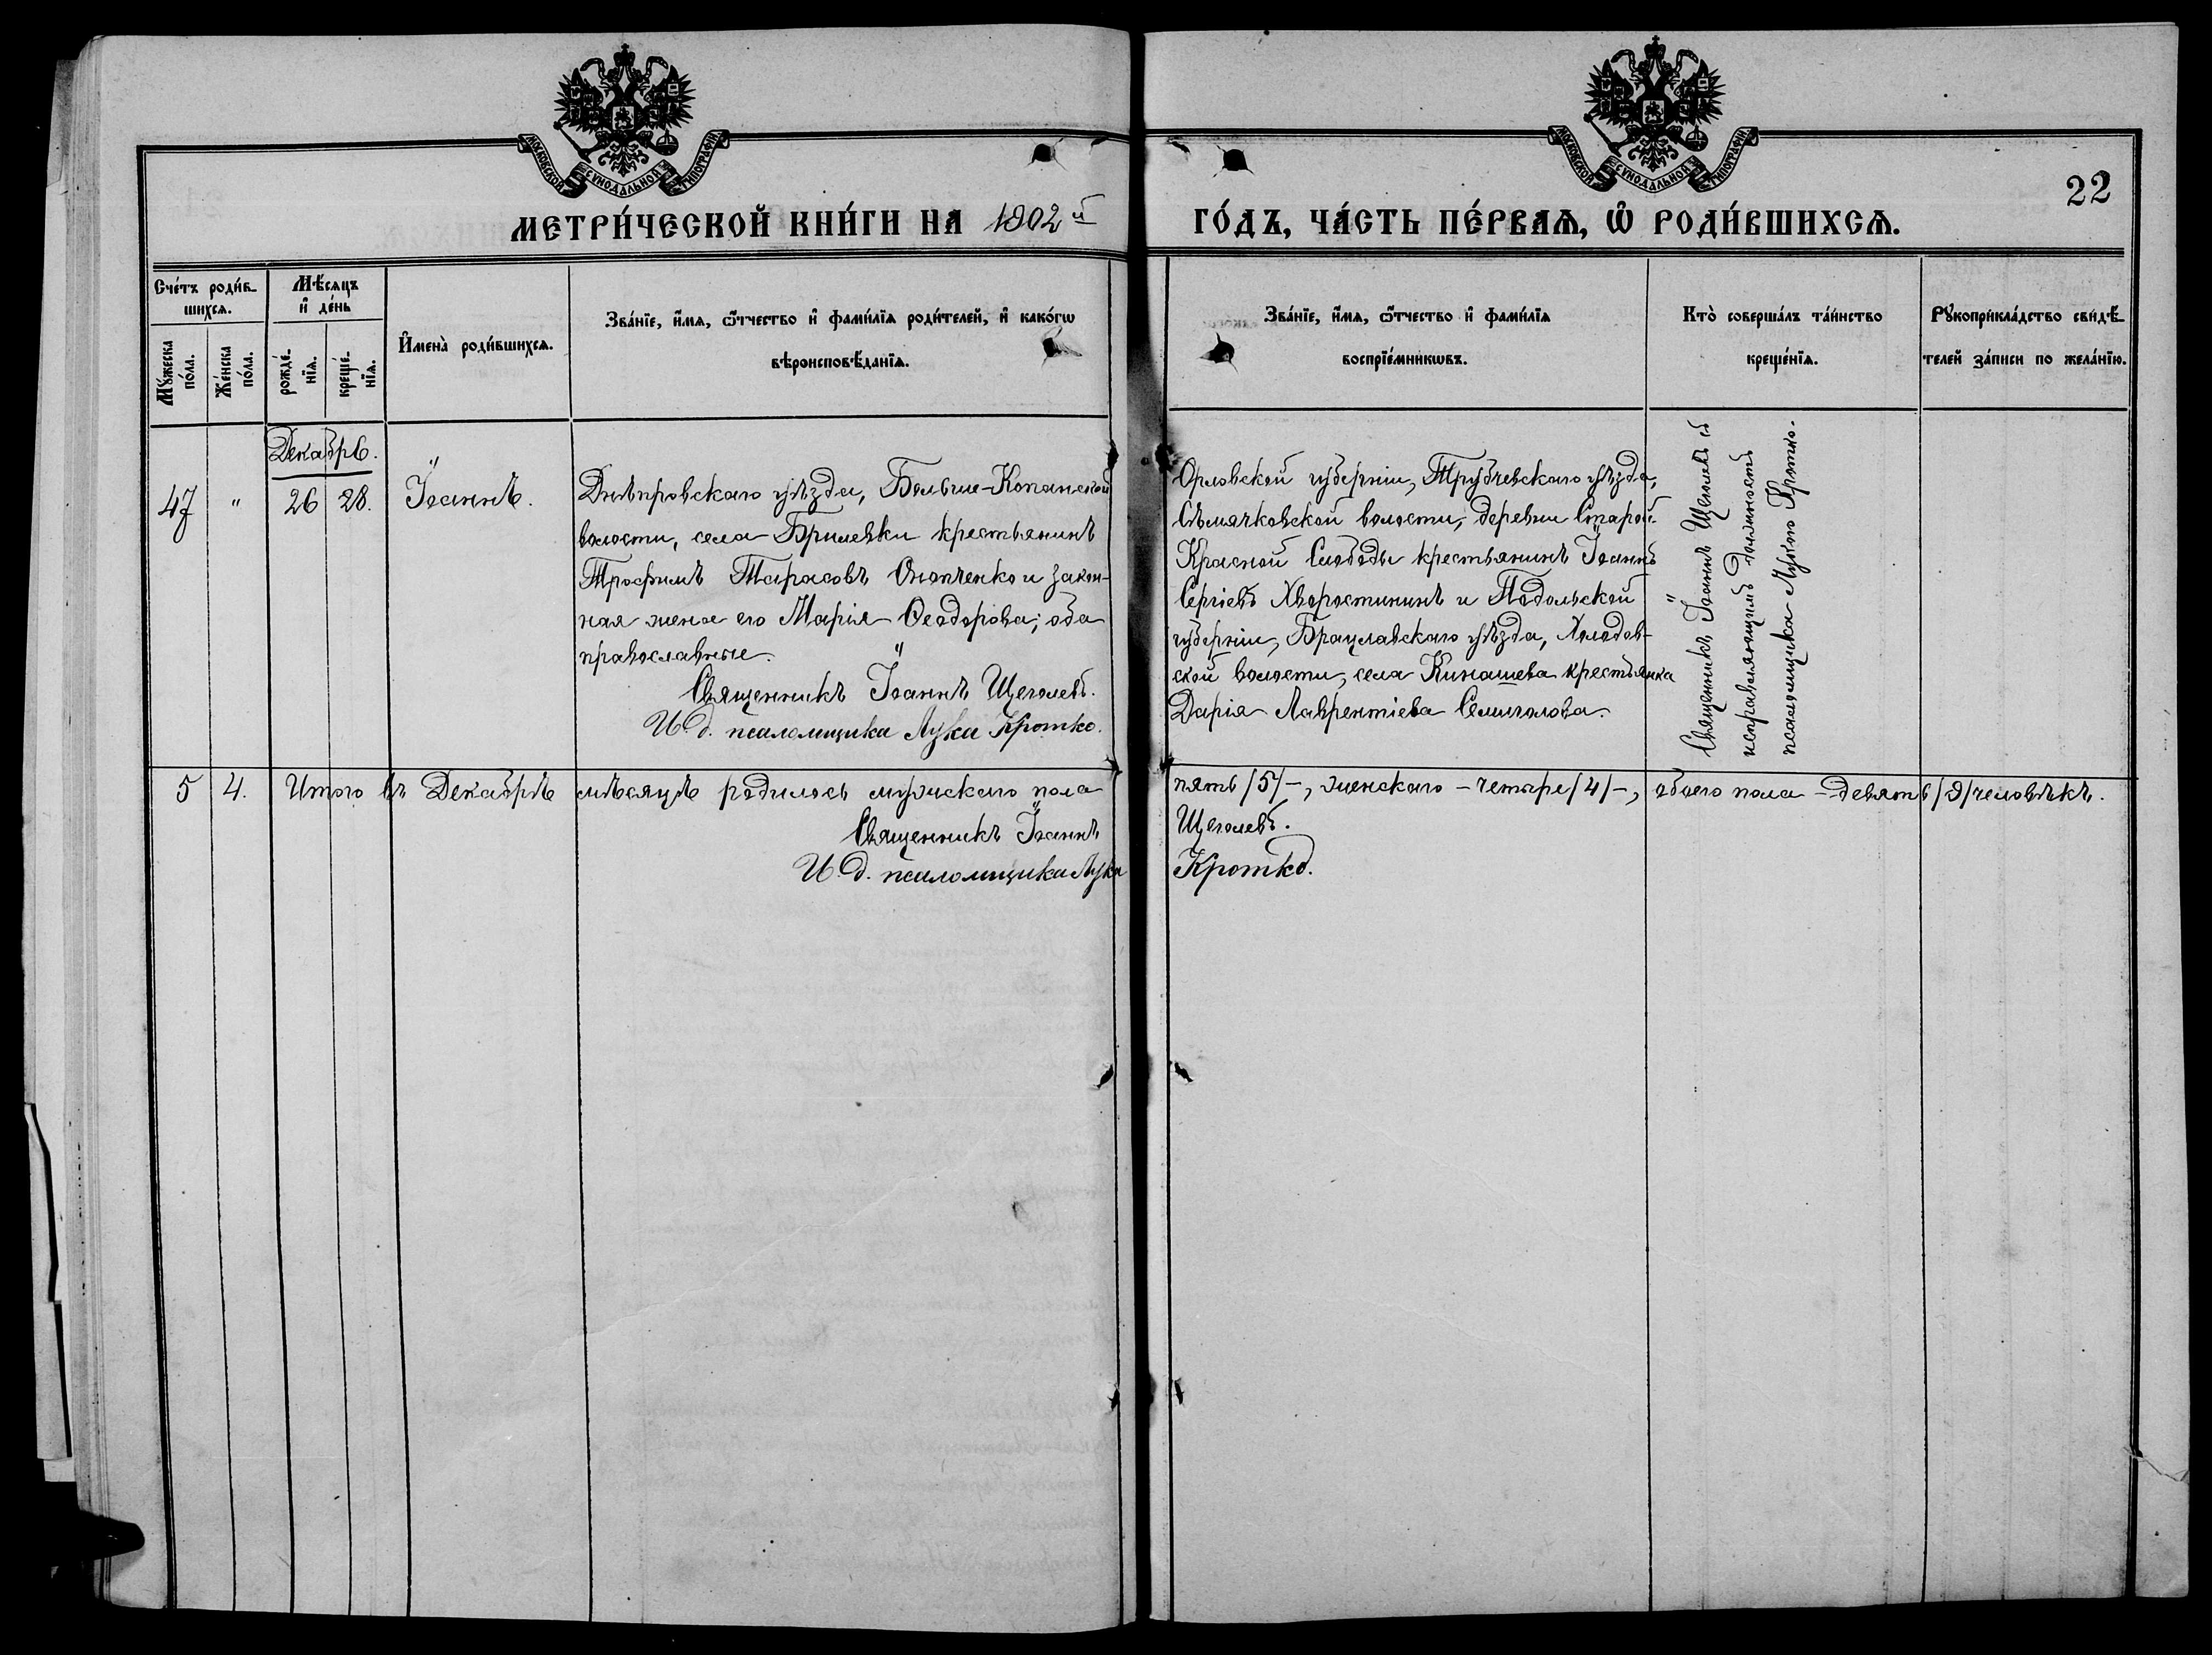 МОСКОВСКОЙ СУНОДАЛЬНОЙ ТИПОГРАФІИ
МОСКОВСКОЙ СУНОДАЛЬНОЙ ТИПОГРАФІИ
22
МЕТРИ́ЧЕСКОЙ КНИ́ГИ НА 1902й ГО́ДЪ, ЧА́СТЬ ПЕ́РВАѦ, Ѡ҆ РОДИ́ВШИХСѦ.
Сче́тъ роди́в-
шихсѧ.
Мꙋ́жеска
по́ла.
Же́нска
по́ла.
Мѣ́сѧцъ
и҆ де́нь
рожде́-
нїѧ.
креще́-
нїѧ.
И҆мена̀ роди́вшихсѧ.
Зва́нїе, и҆́мѧ, ѻ҆́тчество и҆ фами́лїѧ роди́телей, и҆ како́гѡ
вѣроисповѣ́данїѧ.
Зва́нїе, и҆́мѧ, ѻ҆́тчество и҆ фами́лїѧ
воспрїе́мникѡвъ.
Кто̀ соверша́лъ та́инство
креще́нїѧ.
Рꙋкоприкла́дство свидѣ́-
телей за́писи по жела́нїю.
Декабрь.
47 " 26 28. Іоаннъ.
Днѣпровскаго уѣзда, Больше-Копанской
волости, села Брилевки крестьянинъ
Трофимъ Тарасовъ Онопченко и закон-
ная жена его Марія Ѳеодорова; оба
православные.
Священникъ Іоаннъ Щеголевъ.
И. д. псаломщика Лука Кротко.
Орловской губерніи, Трубчевскаго уѣзда,
Сѣмячковской волости, деревни Старой-
Красной Слободы крестьянинъ Іоаннъ
Сергіевъ Хворостининъ и Подольской
губерніи, Брацлавскаго уѣзда,
ской волости, села Кинашева крестьянка
Дарія Лаврентіева Семиголова.
Священникъ Іоаннъ Щеголевъ съ
исправляющимъ должность
псаломщика Лукою Кротко.
5 4. Итого въ Декабрѣ мѣсяцѣ родилось мужскаго пола пять /5/-, женскаго - четыре /4/-, обоего пола - девять /9/ человѣкъ.
Священникъ Іоаннъ Щеголевъ.
И. д. псаломщика Лука Кротко.